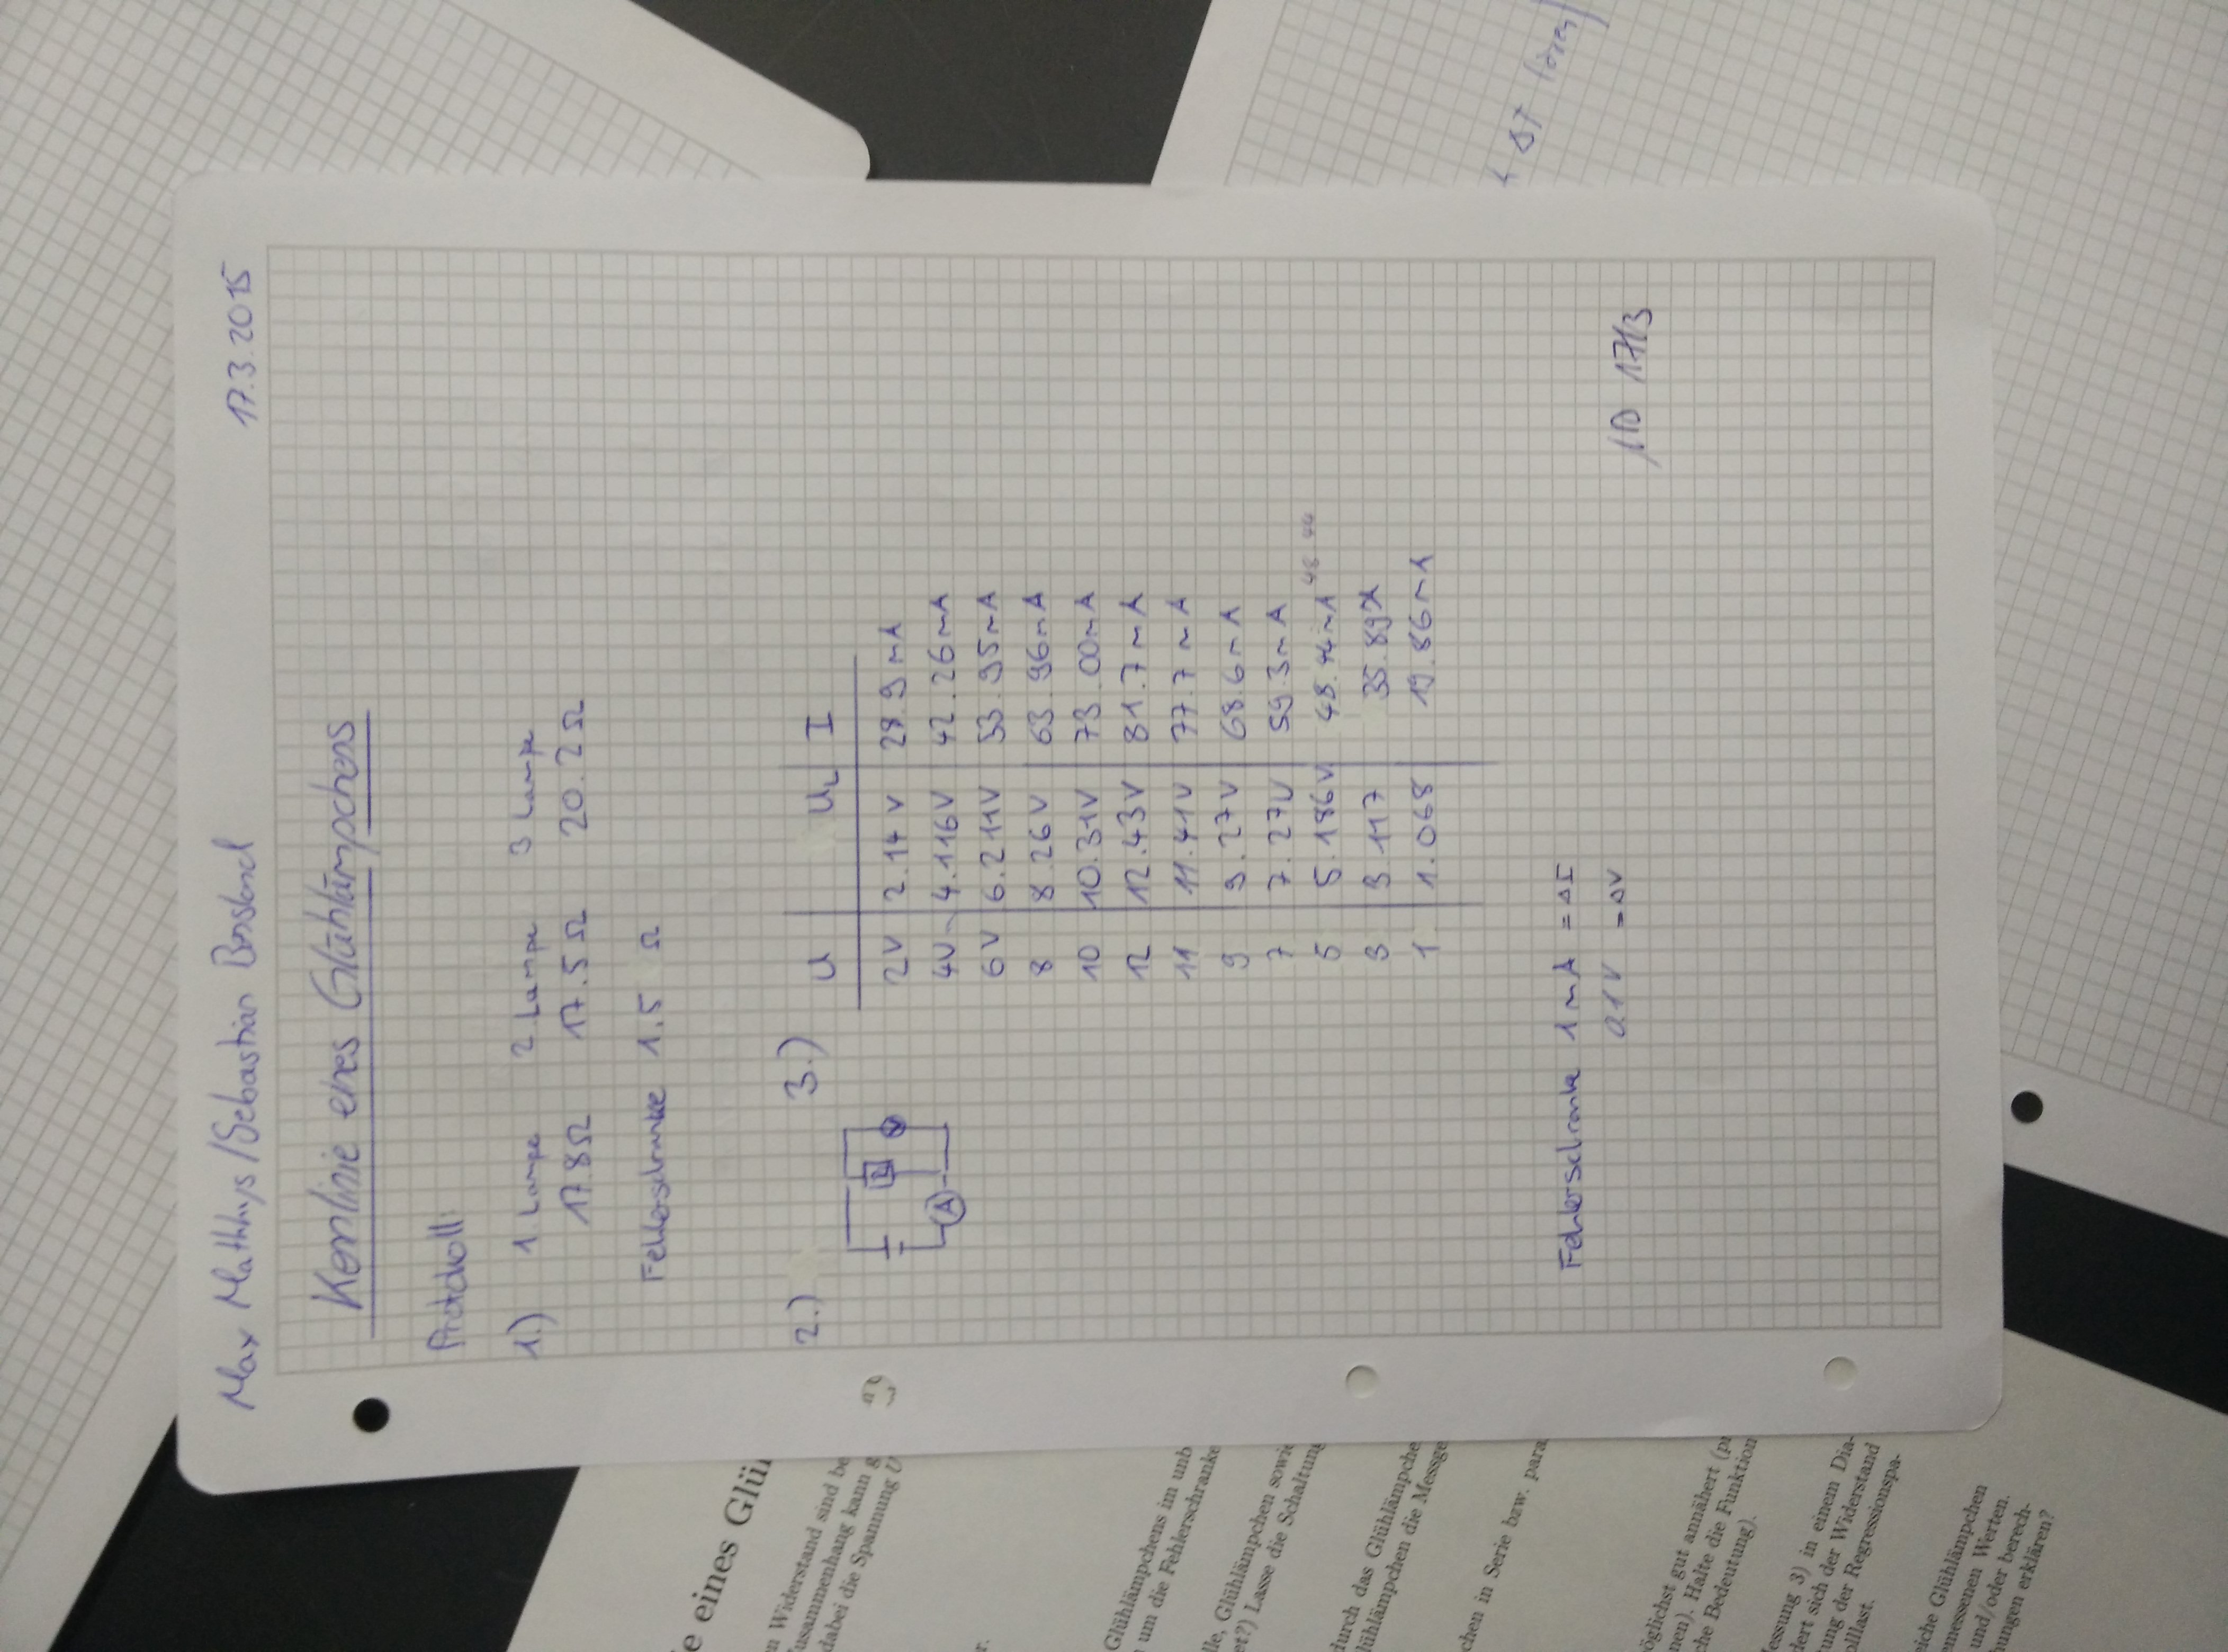 Max Matthys/Sebastian Bosshard 17.3.2015
Kennlinie eines Glühlämpchens
Protokoll:
1.) 1. Lampe 2 Lampe 3 Lampe
17.8Ω 17.5Ω 20.2Ω
Fehlerschranke 1.5 Ω
2.) 3.)
U UL I
2V 2.14V 28.9mA
4V 4.116V 42.26mA
6V 6.211V 53.95mA
8 8.26V 63.96mA
10 10.31V 73.00mA
12 12.43V 81.7mA
11 11.41V 77.7mA
9 9.27V 68.6mA
7 7.27V 59.3mA
5 5.186V 48.44mA 48 44
3 3.117 35.89
1 1.068 19.86mA
L
V
A
Fehlerschranke 1mA = ΔI
0.1V = ΔV
17/3
ΔT
e eines Glü
n Widerstand sind be
Zusammenhang kann g
dabei die Spannung U
r.
Glühlämpchens im unb
um die Fehlerschranke
lle, Glühlämpchen sowie
et?) Lasse die Schaltung
durch das Glühlämpche
lühlämpchen die Messge
chen in Serie bzw. para
öglichst gut annähert (p
nen). Halte die Funktion
che Bedeutung).
essung 3) in einem Dia-
dert sich der Widerstand
ung der Regressionspa-
olllast.
eiche Glühlämpchen
emessenen Werten.
und/oder berech-
ungen erklären?